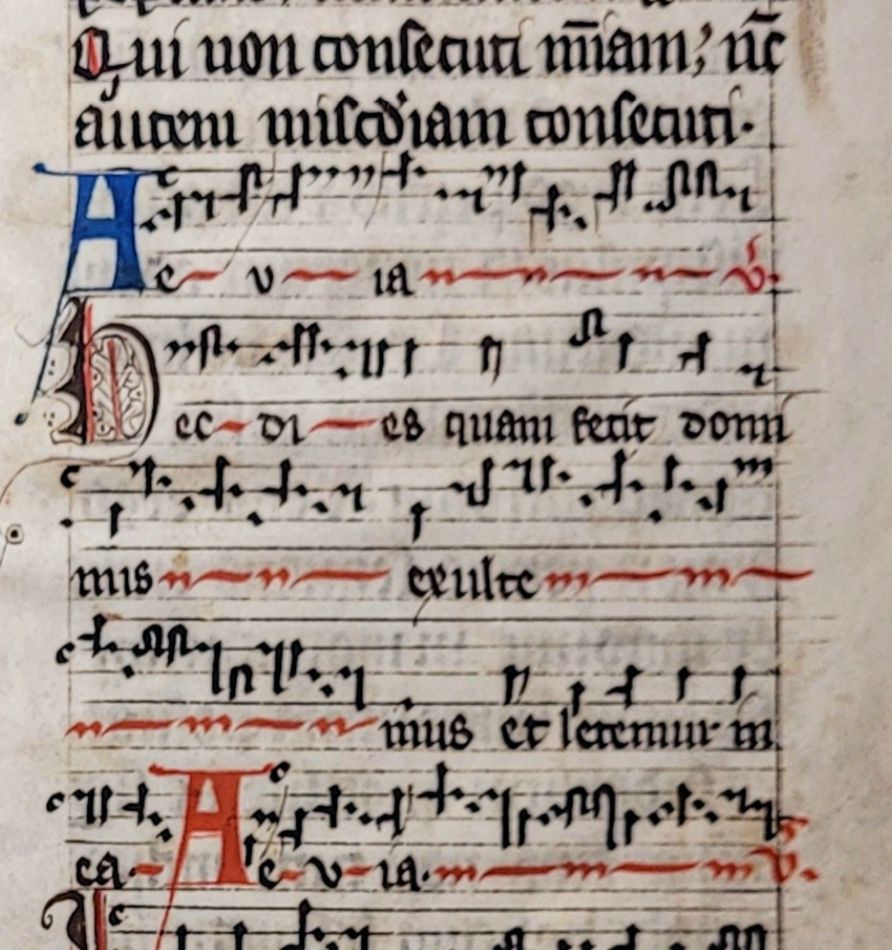 Qui non consecuti m̄iam; nc̄
autem misc̄diam consecuti.
Ae u ia ꝟ.
Hec di es quam fecit domi
nus exulte
mus et letemur in
ea. Ae u ia. ꝟ.